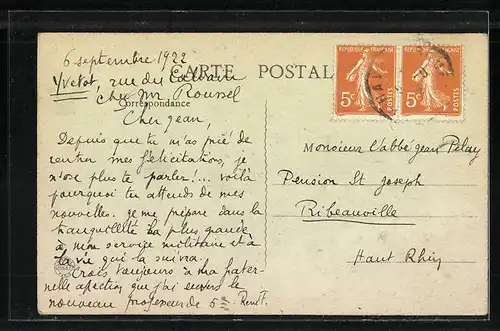 6 septembre 1922
Yvetot, rue du Calvaire
CARTE POSTALE
chez Mr Roussel
Correspondance
Cher jean,
Depuis que tu m'as prié de
rentrer mes félicitations, je
n'ose plus te parler!... voilà
pourquoi tu attends de mes
nouvelles. je me prépare dans la
tranquillité la plus grande
à mon service militaire et à
la vie qui la suivra.
Crois toujours à ma frater-
nelle affection que j'ai envers le
nouveau professeur de 5e
RÉPUBLIQUE FRANÇAISE
5c
POSTES
RÉPUBLIQUE FRANÇAISE
5c
POSTES
Monsieur l'abbé jean Pelay
Pension St joseph
Ribeauville
Haut Rhin